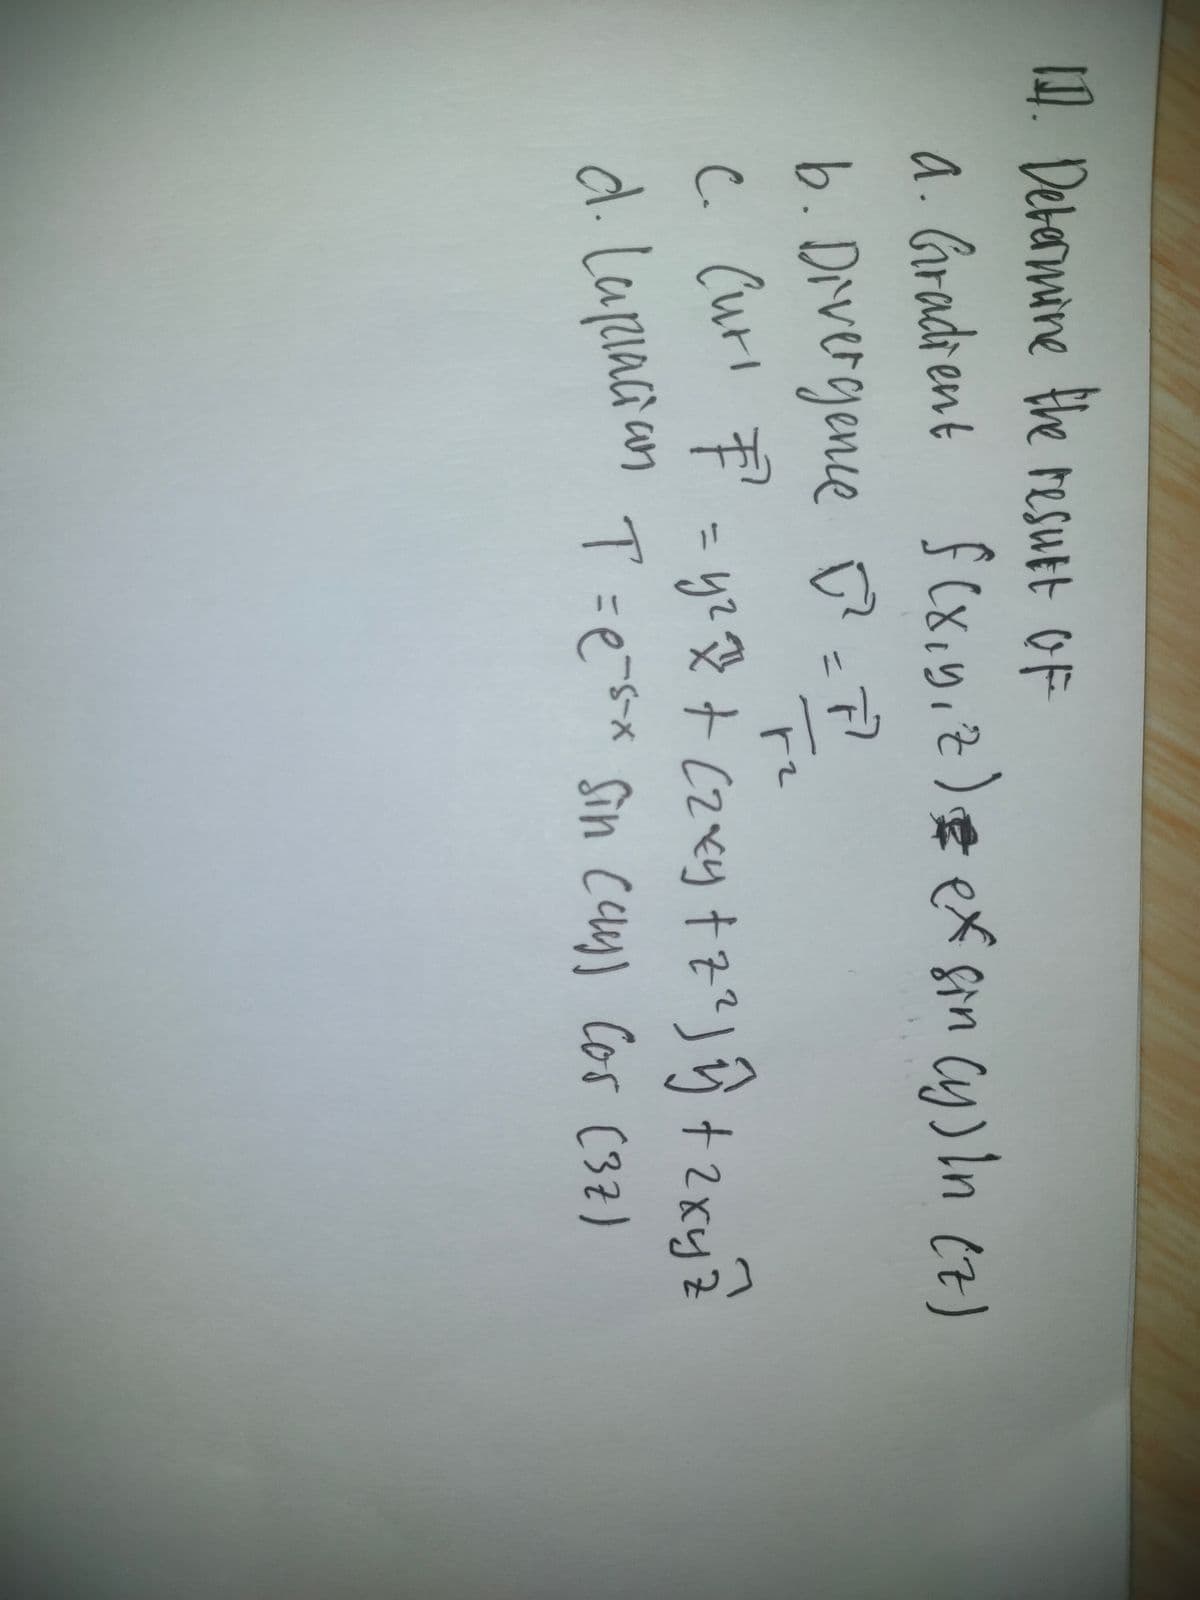 III. Determine the result of
a. Gradient f(x,y,z) = e^x sin (y) ln (z)
b. Divergence v⃗ = r⃗ / r²
c. Curl F⃗ = y² x̂ + (2xy + z²) ŷ + 2xy ẑ
d. Laplacian T = e^-5-x sin (4y) cos (3z)